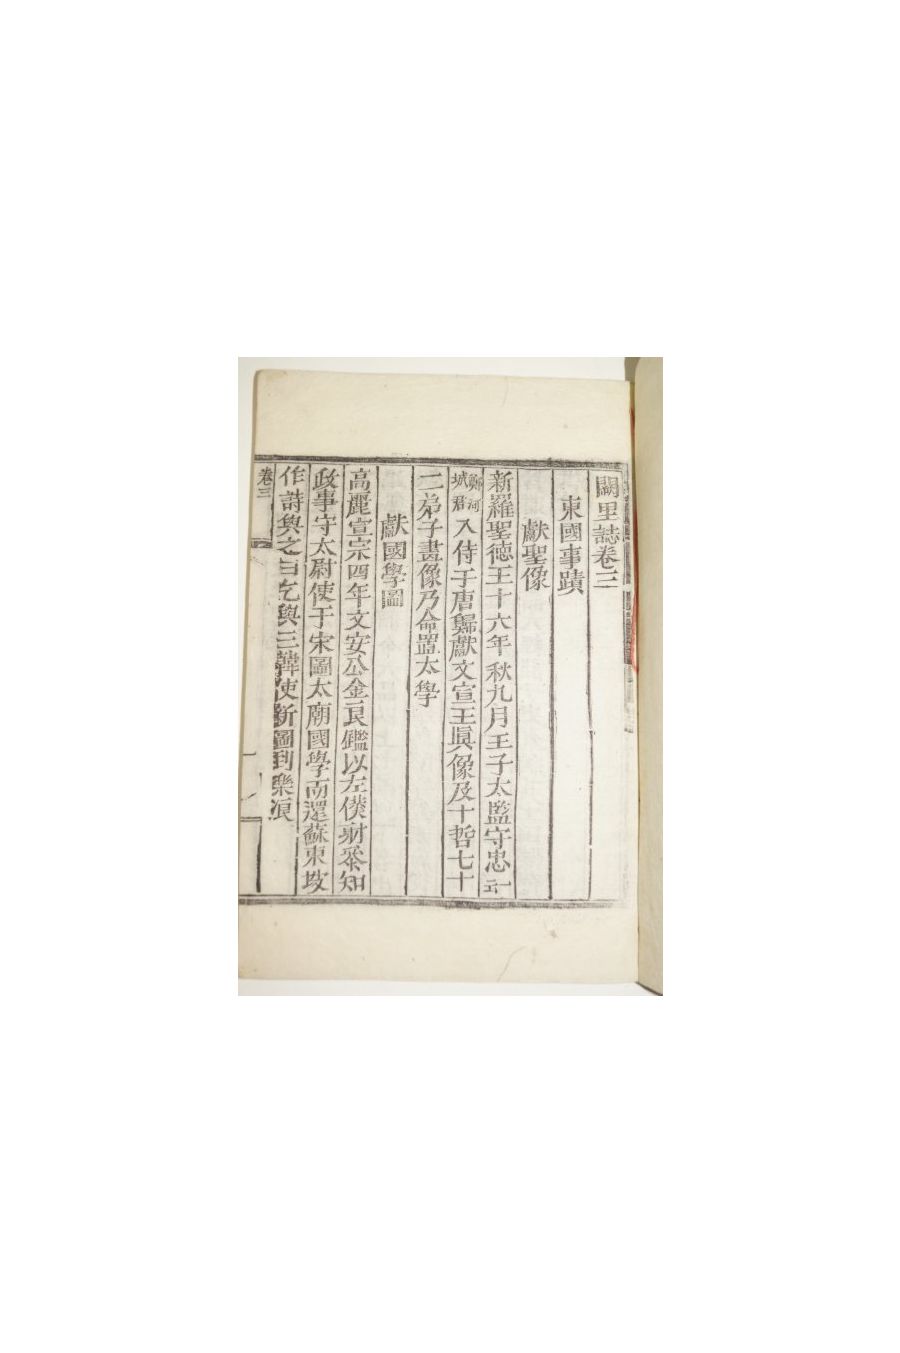 闕里誌卷三
東國事蹟
獻聖像
新羅聖德王十六年秋九月王子太監守忠
鄭河城君入侍于唐歸獻文宣王眞像及十哲七十
二弟子畫像乃命置太學
獻國學圖
高麗宣宗四年文安公金良鑑以左僕射叅知
政事守太尉使于宋圖太廟國學而還蘇東坡
作詩與之曰乞與三韓使新圖到樂浪
卷三